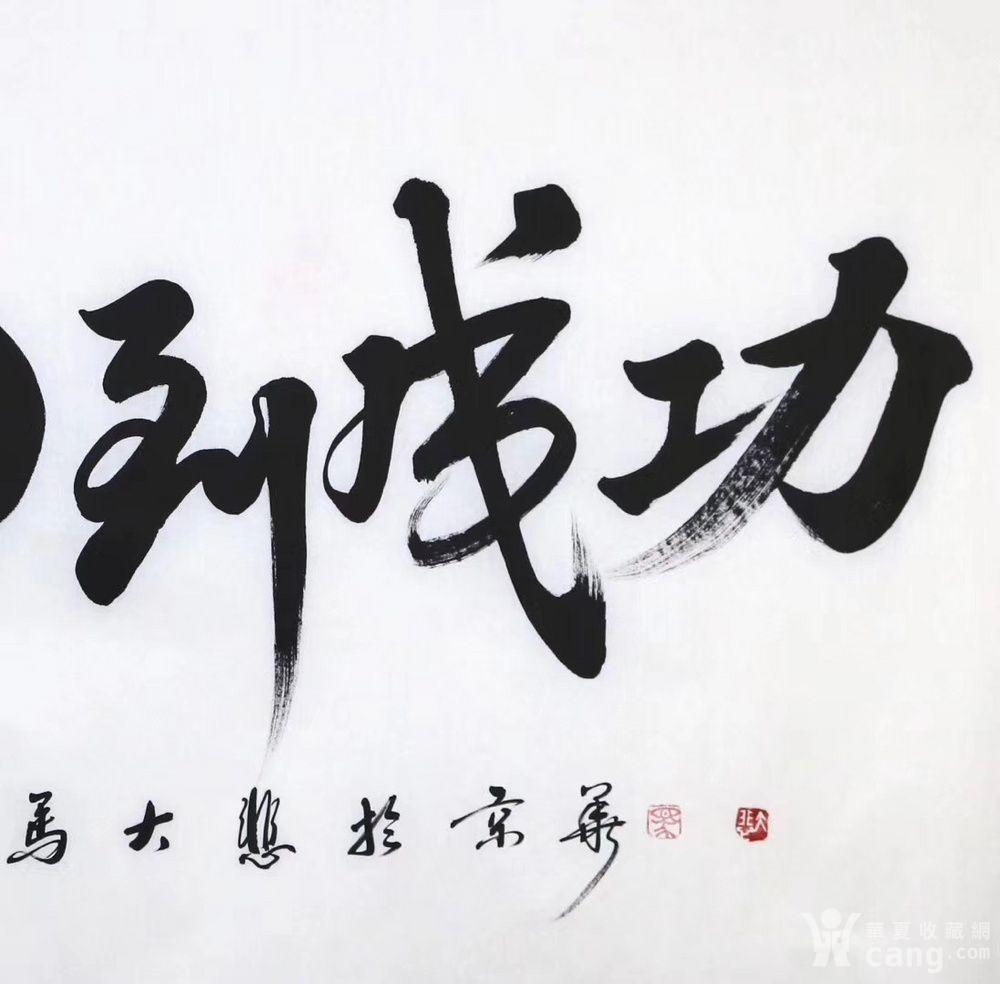 到成功
馬大悲於京華
大悲
華夏收藏網
cang.com